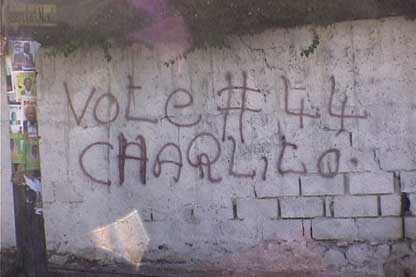 VOTE # 44
CHARLITO.